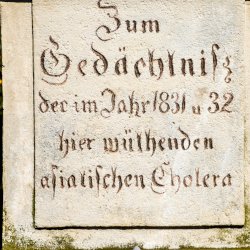 Zum
Gedächtniß
der im Jahr 1831 u 32
hier wüthenden
asiatischen Cholera